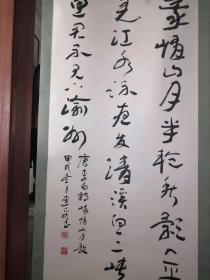 峨眉山月半轮秋影入平
羌江水流夜发清溪向三峡
思君不见下渝州
唐李白诗峨眉山月歌
甲戌冬